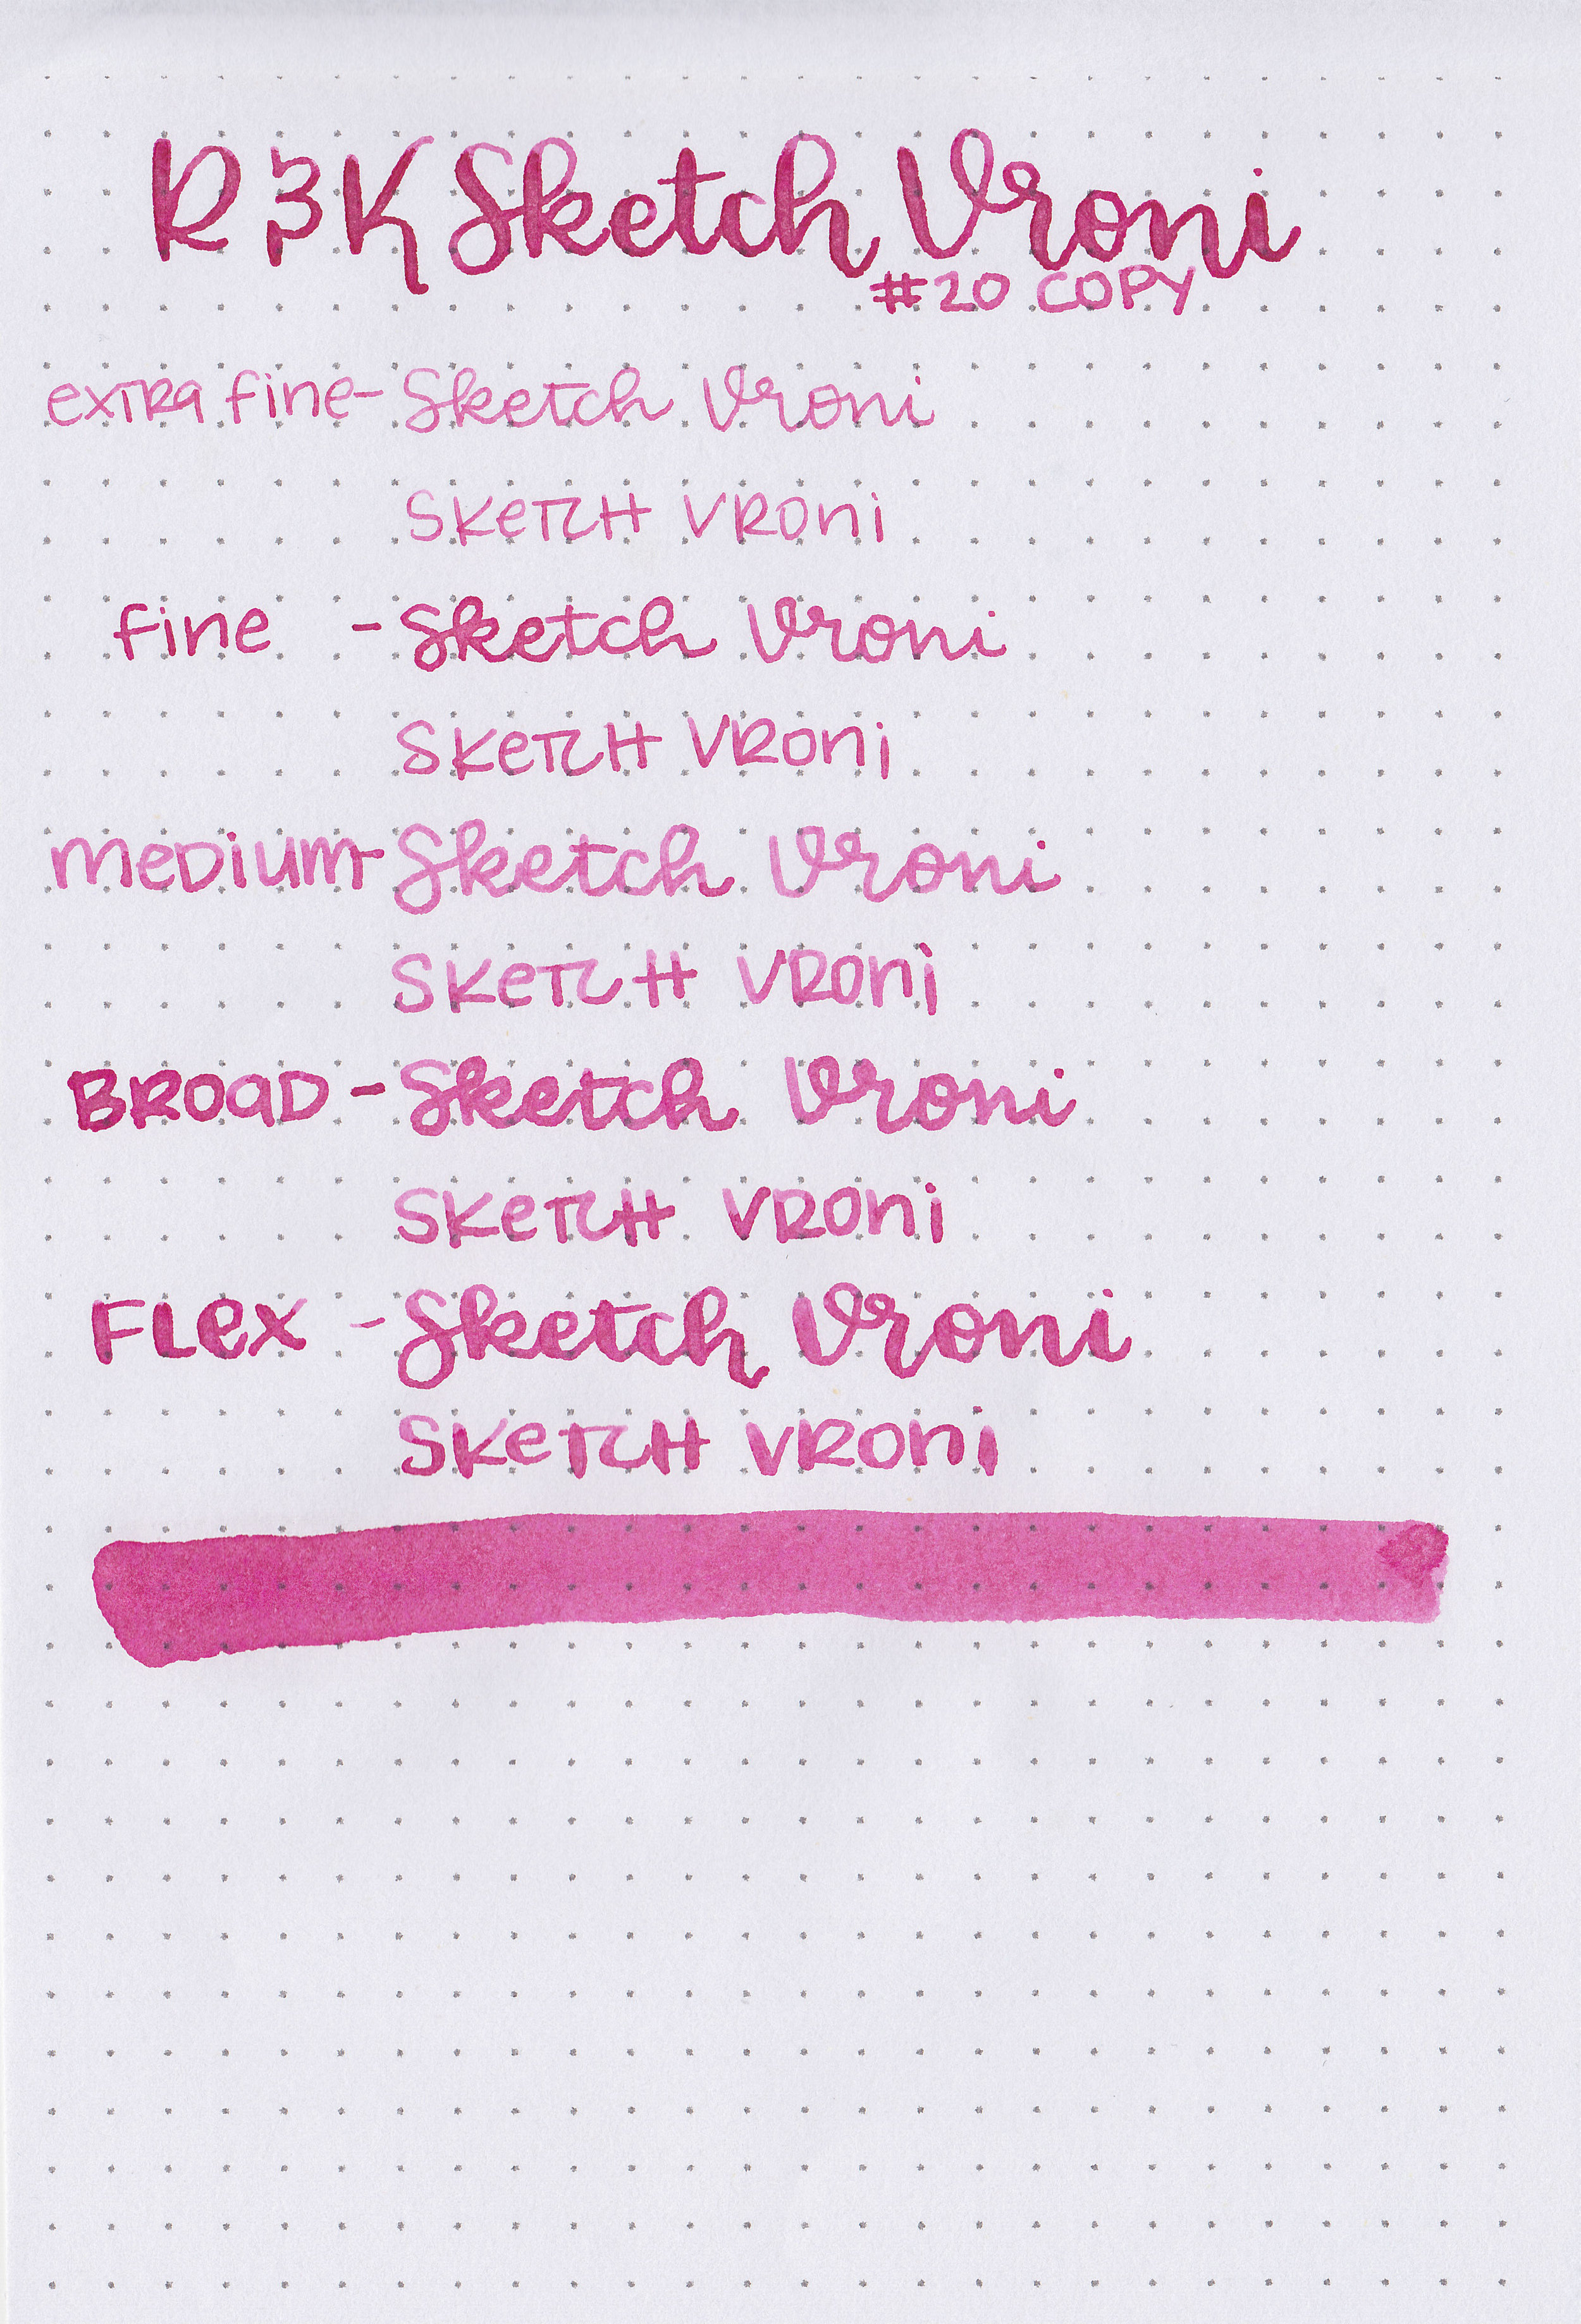 R&K Sketch Vroni
#20 COPY
extra fine - Sketch Vroni
SKETCH VRONI
fine - Sketch Vroni
SKETCH VRONI
MEDIUM - Sketch Vroni
SKETCH VRONI
BROAD - Sketch Vroni
SKETCH VRONI
FLEX - Sketch Vroni
SKETCH VRONI